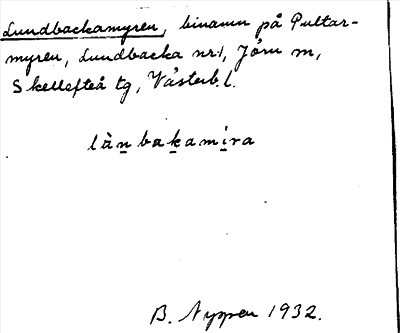 Lundbackamyren, binamn på Pultar-
myren, Lundbacka nr 1, Jörn m,
Skellefteå tg, Västerb. l.
làn̲bak̲ami̲ra
B. Nyppen 1932.